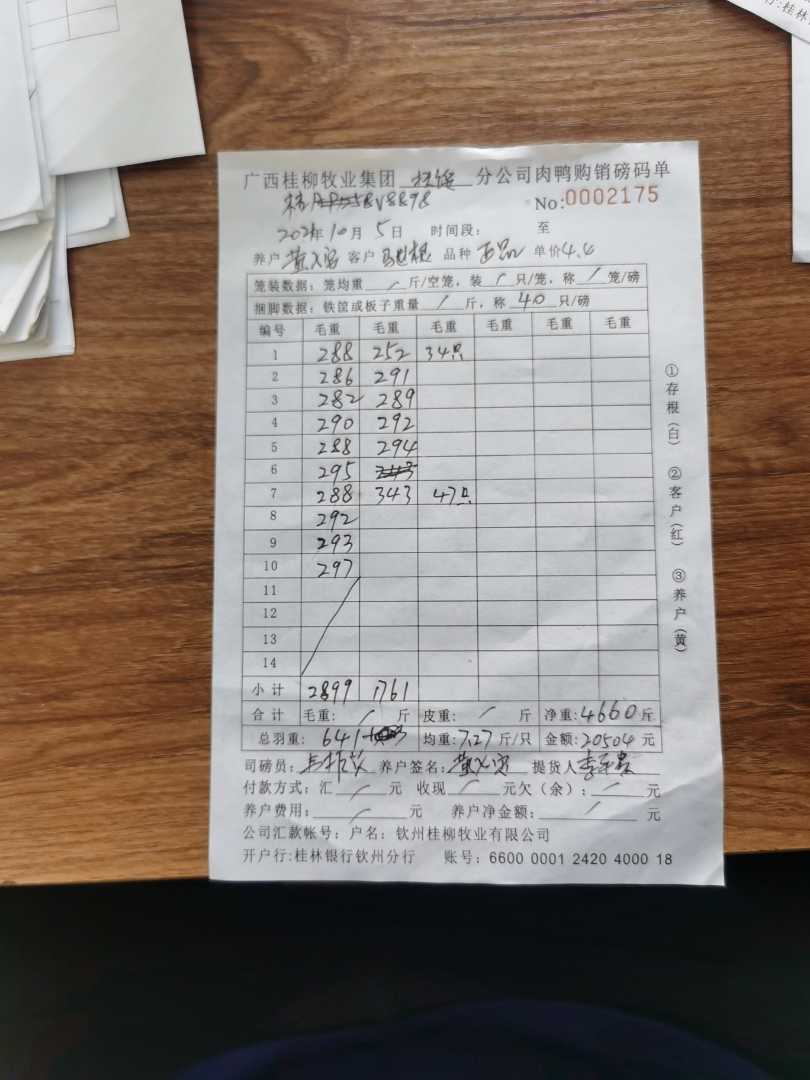 行:桂林
广西桂柳牧业集团 分公司肉鸭购销磅码单
8V8898 No:0002175
202 年10月5日 时间段: 至
养户 黄 客户 品种 正品 单价4.4
笼装数据: 笼均重 / 斤/空笼, 装 / 只/笼, 称 / 笼/磅
捆脚数据: 铁筐或板子重量 / 斤, 称 40 只/磅
编号 毛重 毛重 毛重 毛重 毛重 毛重
1 288 252 34只
2 286 291
3 282 289
4 290 292
5 288 294
6 295 243
7 288 343 47只
8 292
9 293
10 297
11
12
13
14
小计 2899 1761
合计 毛重: / 斤 皮重: / 斤 净重:4660斤
总羽重: 641 均重:7.27斤/只 金额:20504元
司磅员: 养户签名: 黄 提货人 李
付款方式: 汇 / 元 收现 / 元欠(余): / 元
养户费用: / 元 养户净金额: / 元
公司汇款帐号: 户名: 钦州桂柳牧业有限公司
开户行:桂林银行钦州分行 账号: 6600 0001 2420 4000 18
①存根(白) ②客户(红) ③养户(黄)